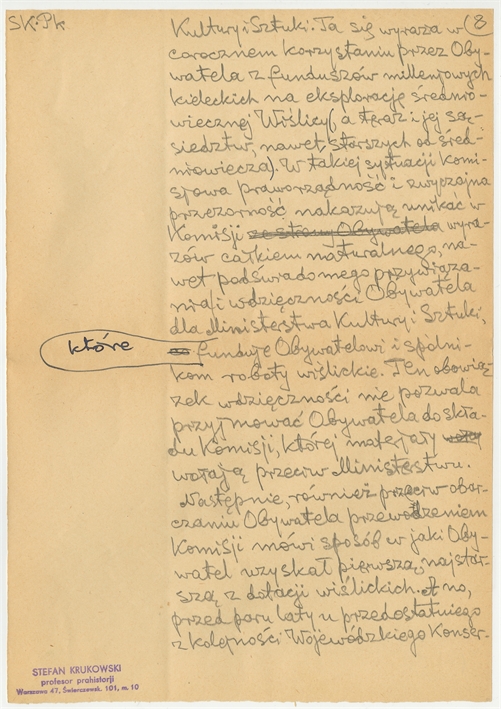 SK:Pk
Kultury i Sztuki. Ta się wyraża w (8
corocznem korzystaniu przez Oby-
watela z funduszów millenjowych
kieleckich na eksplorację średnio-
wiecznej Wiślicy (a teraz i jej są-
siedztw, nawet starszych od śred-
niowiecza). W takiej sytuacji Komi-
sjowa praworządność i zwyczajna
przezorność nakazują unikać w
Komisji ze strony Obywatela wyra-
zów całkiem naturalnego, na-
wet podświadomego przywiąza-
nia i wdzięczności Obywatela
dla Ministerstwa Kultury i Sztuki,
które funduje Obywatelowi i spólni-
kom roboty wiślickie. Ten obowią-
zek wdzięczności nie pozwala
przyjmować Obywatela do skła-
du Komisji, której materjały
wołają przeciw Ministerstwu.
Następnie, również przeciw obar-
czaniu Obywatela przewodzeniem
Komisji mówi sposób w jaki Oby-
watel uzyskał pierwszą, najstar-
szą z dotacji wiślickich. A no,
przed paru laty u przedostatniego
z kolejności Wojewódzkiego Konser-
STEFAN KRUKOWSKI
profesor prahistorji
Warszawa 47, Świerczewsk. 101, m. 10